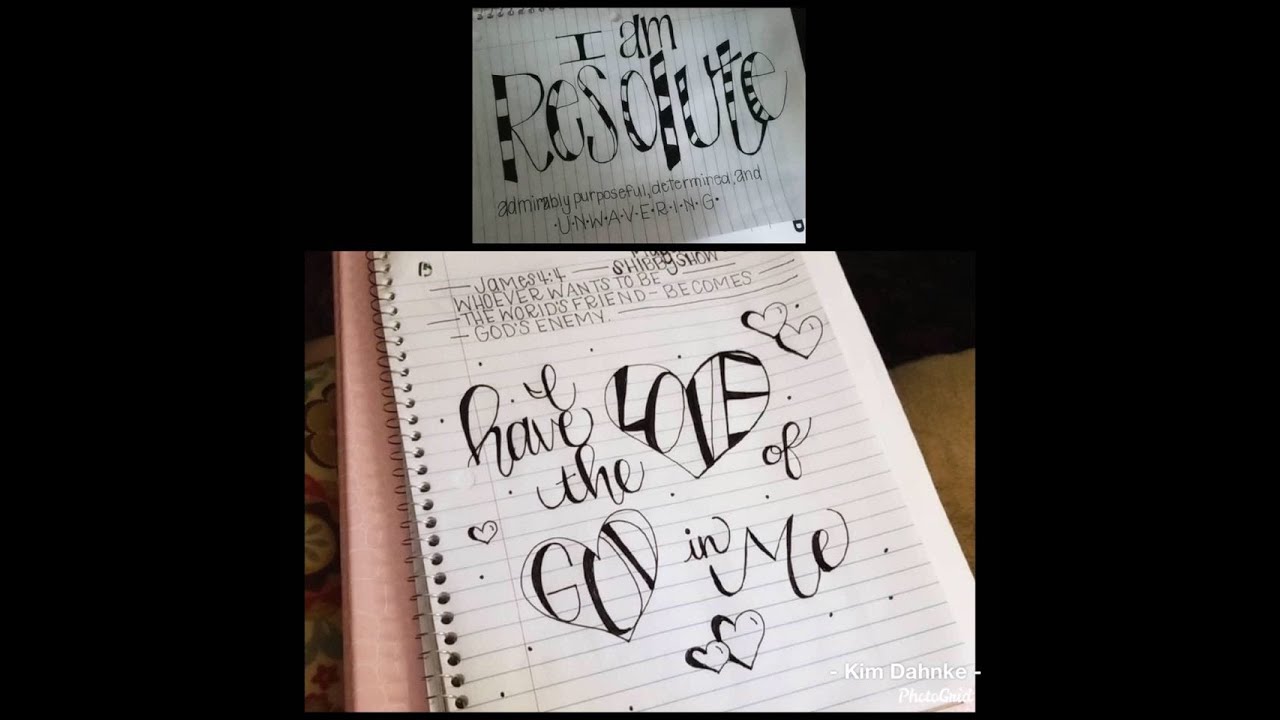 I am
Resolute
admirably purposeful, determined, and
·U·N·W·A·V·E·R·I·N·G·
James 4:4
SHIBBY SHOW
WHOEVER WANTS TO BE
THE WORLD'S FRIEND - BECOMES
GOD'S ENEMY.
I
have
the
LOVE
of
GOD
in Me
- Kim Dahnke -
PhotoGrid